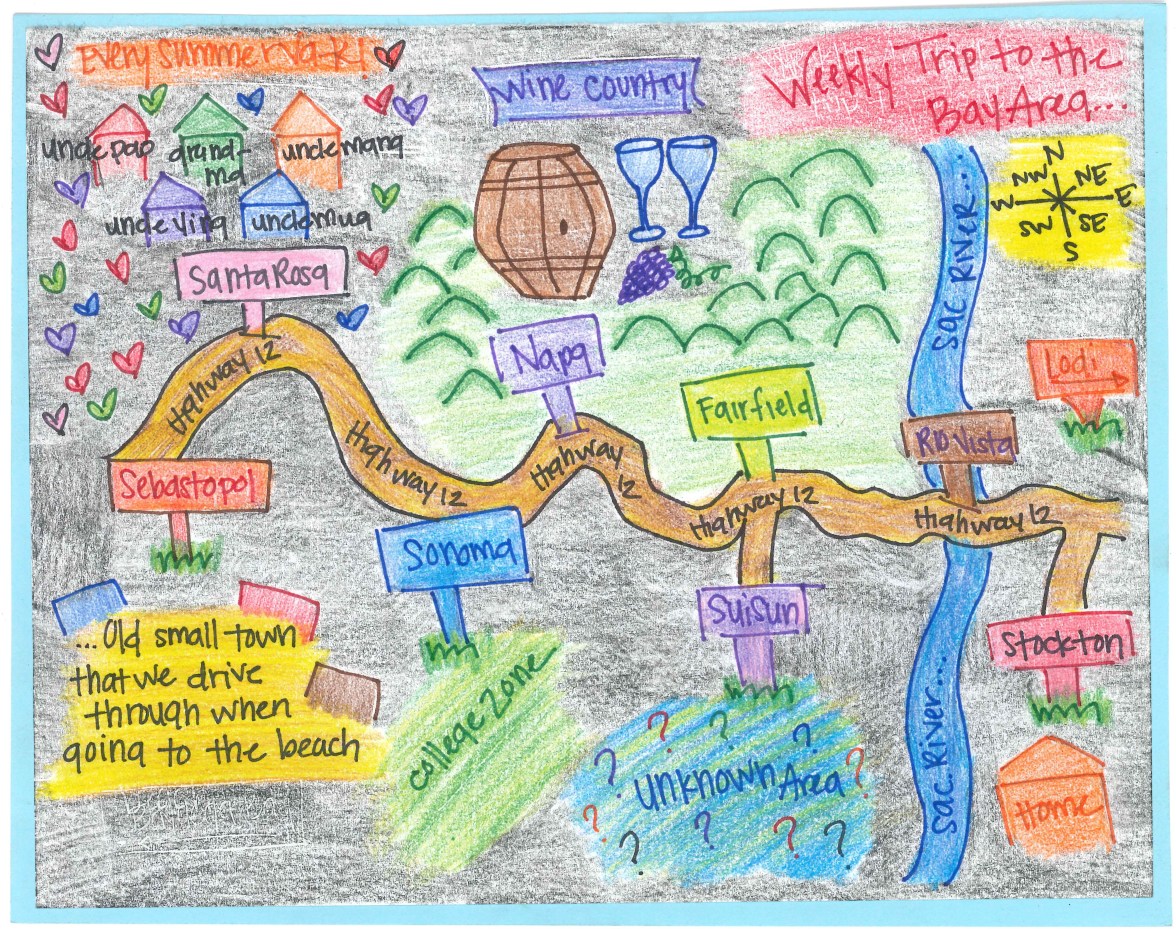 Every summer Vak!
Wine country
Weekly Trip to the
Bay Area...
uncle pao
grand-
ma
uncle mang
uncle ying
uncle mua
Santa Rosa
N
NE
E
SE
S
SW
W
NW
Sac River...
Lodi
Napa
Fairfield
Rio Vista
Highway 12
Highway 12
Highway 12
Highway 12
Highway 12
Sebastopol
Sonoma
Suisun
Stockton
...Old small town
that we drive
through when
going to the beach
college zone
? ? ?
? unknown Area ?
? ? ? ? ?
Sac River...
Home